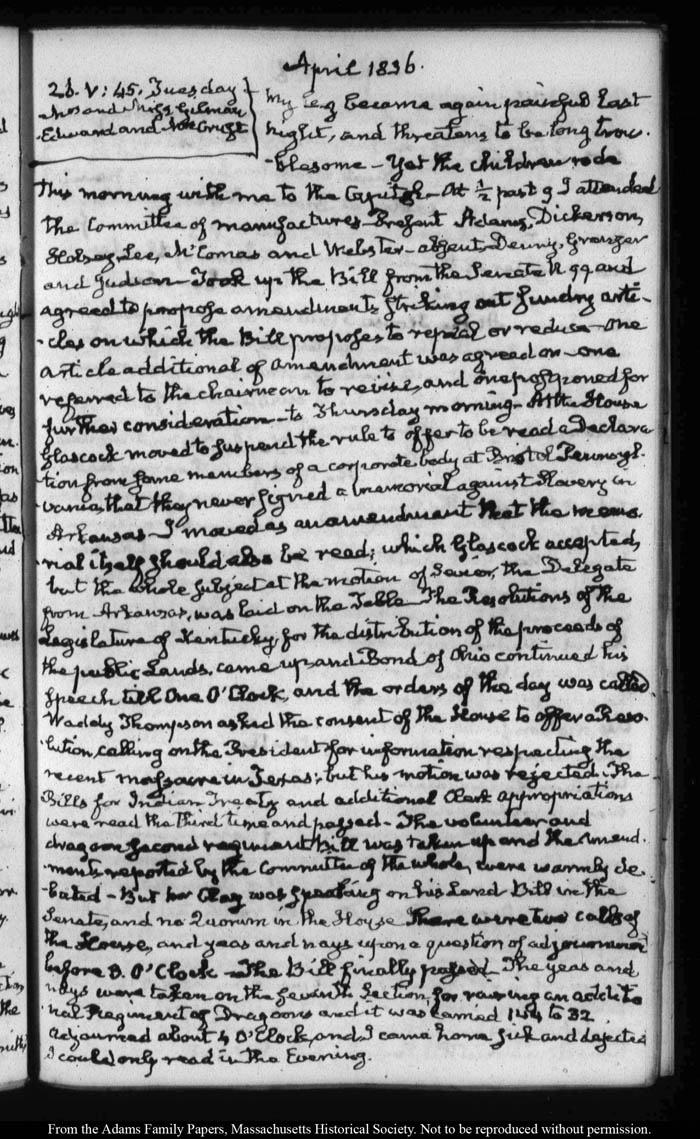 April 1836.
26. V: 45. Tuesday
Mrs and Miss Gilman
Edward and
My leg became again painful last
night, and threatens to be long trou-
-blesome – Yet the children rode
this morning with me to the Capitol – At ½ past 9 I attended
the Committee of manufactures – Present Adams, Dickerson,
Halsey, Lee, McComas and Webster – absent Denny, Granger
and Judson – Took up the Bill from the Senate N 99 and
agreed to propose amendments, striking out sundry arti-
-cles on which the Bill proposes to repeal or reduce – one
article additional of amendment was agreed on – one
referred to the chairman to revise, and one postponed for
further consideration – to Thursday morning – At the House
Glascock moved to suspend the rule to offer to be read a Declara
tion from some members of a corporate body at Bristol Pennsyl-
-vania, that they never signed a memorial against Slavery in
Arkansas – I moved as an amendment that the memo-
-rial itself should also be read; which Glascock accepted,
but the whole subject at the motion of Sevier, the Delegate
from Arkansas, was laid on the Table – The Resolutions of the
Legislature of Kentucky for the distribution of the proceeds of
the public Lands, came up, and Bond of Ohio continued his
speech till One O'Clock, and the orders of the day was called
Waddy Thompson asked the consent of the House to offer a Reso-
-lution, calling on the President for information respecting the
recent massacre in Texas; but his motion was rejected. The
Bills for Indian Treaty and additional Clerk appropriations
were read the third time and passed – The volunteer and
dragoon second regiment bill was taken up and the amend-
-ments reported by the Committee of the whole, were warmly de-
-bated – But Mr Clay was speaking on his Land Bill in the
Senate, and no Quorum in the House There were two calls of
the House, and yeas and nays upon a question of adjournment
before 3. O'Clock – The Bill finally passed – The yeas and
nays were taken on the seventh section, for raising an additio
nal Regiment of Dragoons and it was carried 144 to 32.
adjourned about 4 O'Clock, and I came home sick and dejected
I could only read in the Evening.
From the Adams Family Papers, Massachusetts Historical Society. Not to be reproduced without permission.